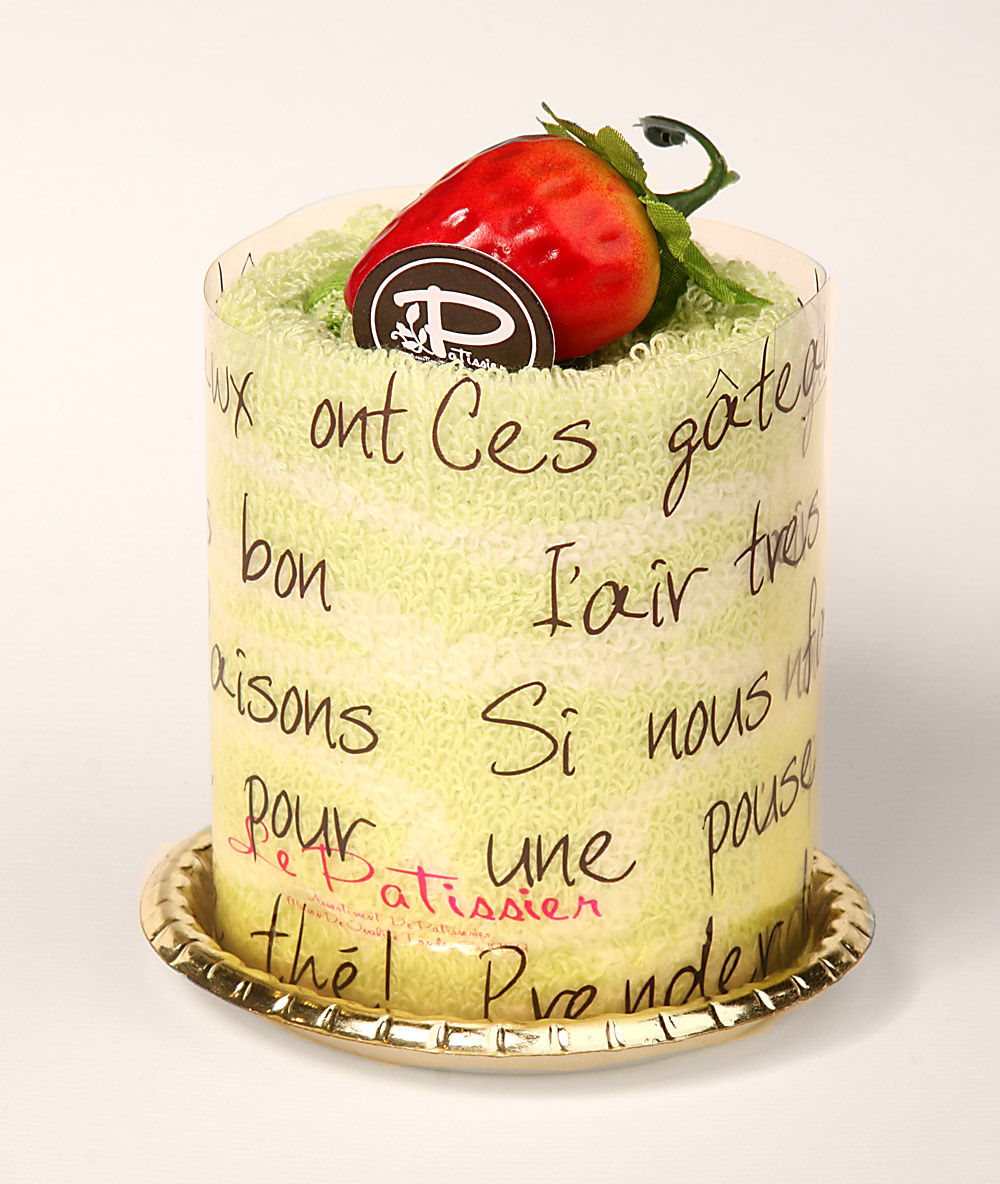 P
Patissier
ux ont Ces gâteau
bon I'air treis
aisons Si nous
pour une pouse
Le Patissier
thé! Prender